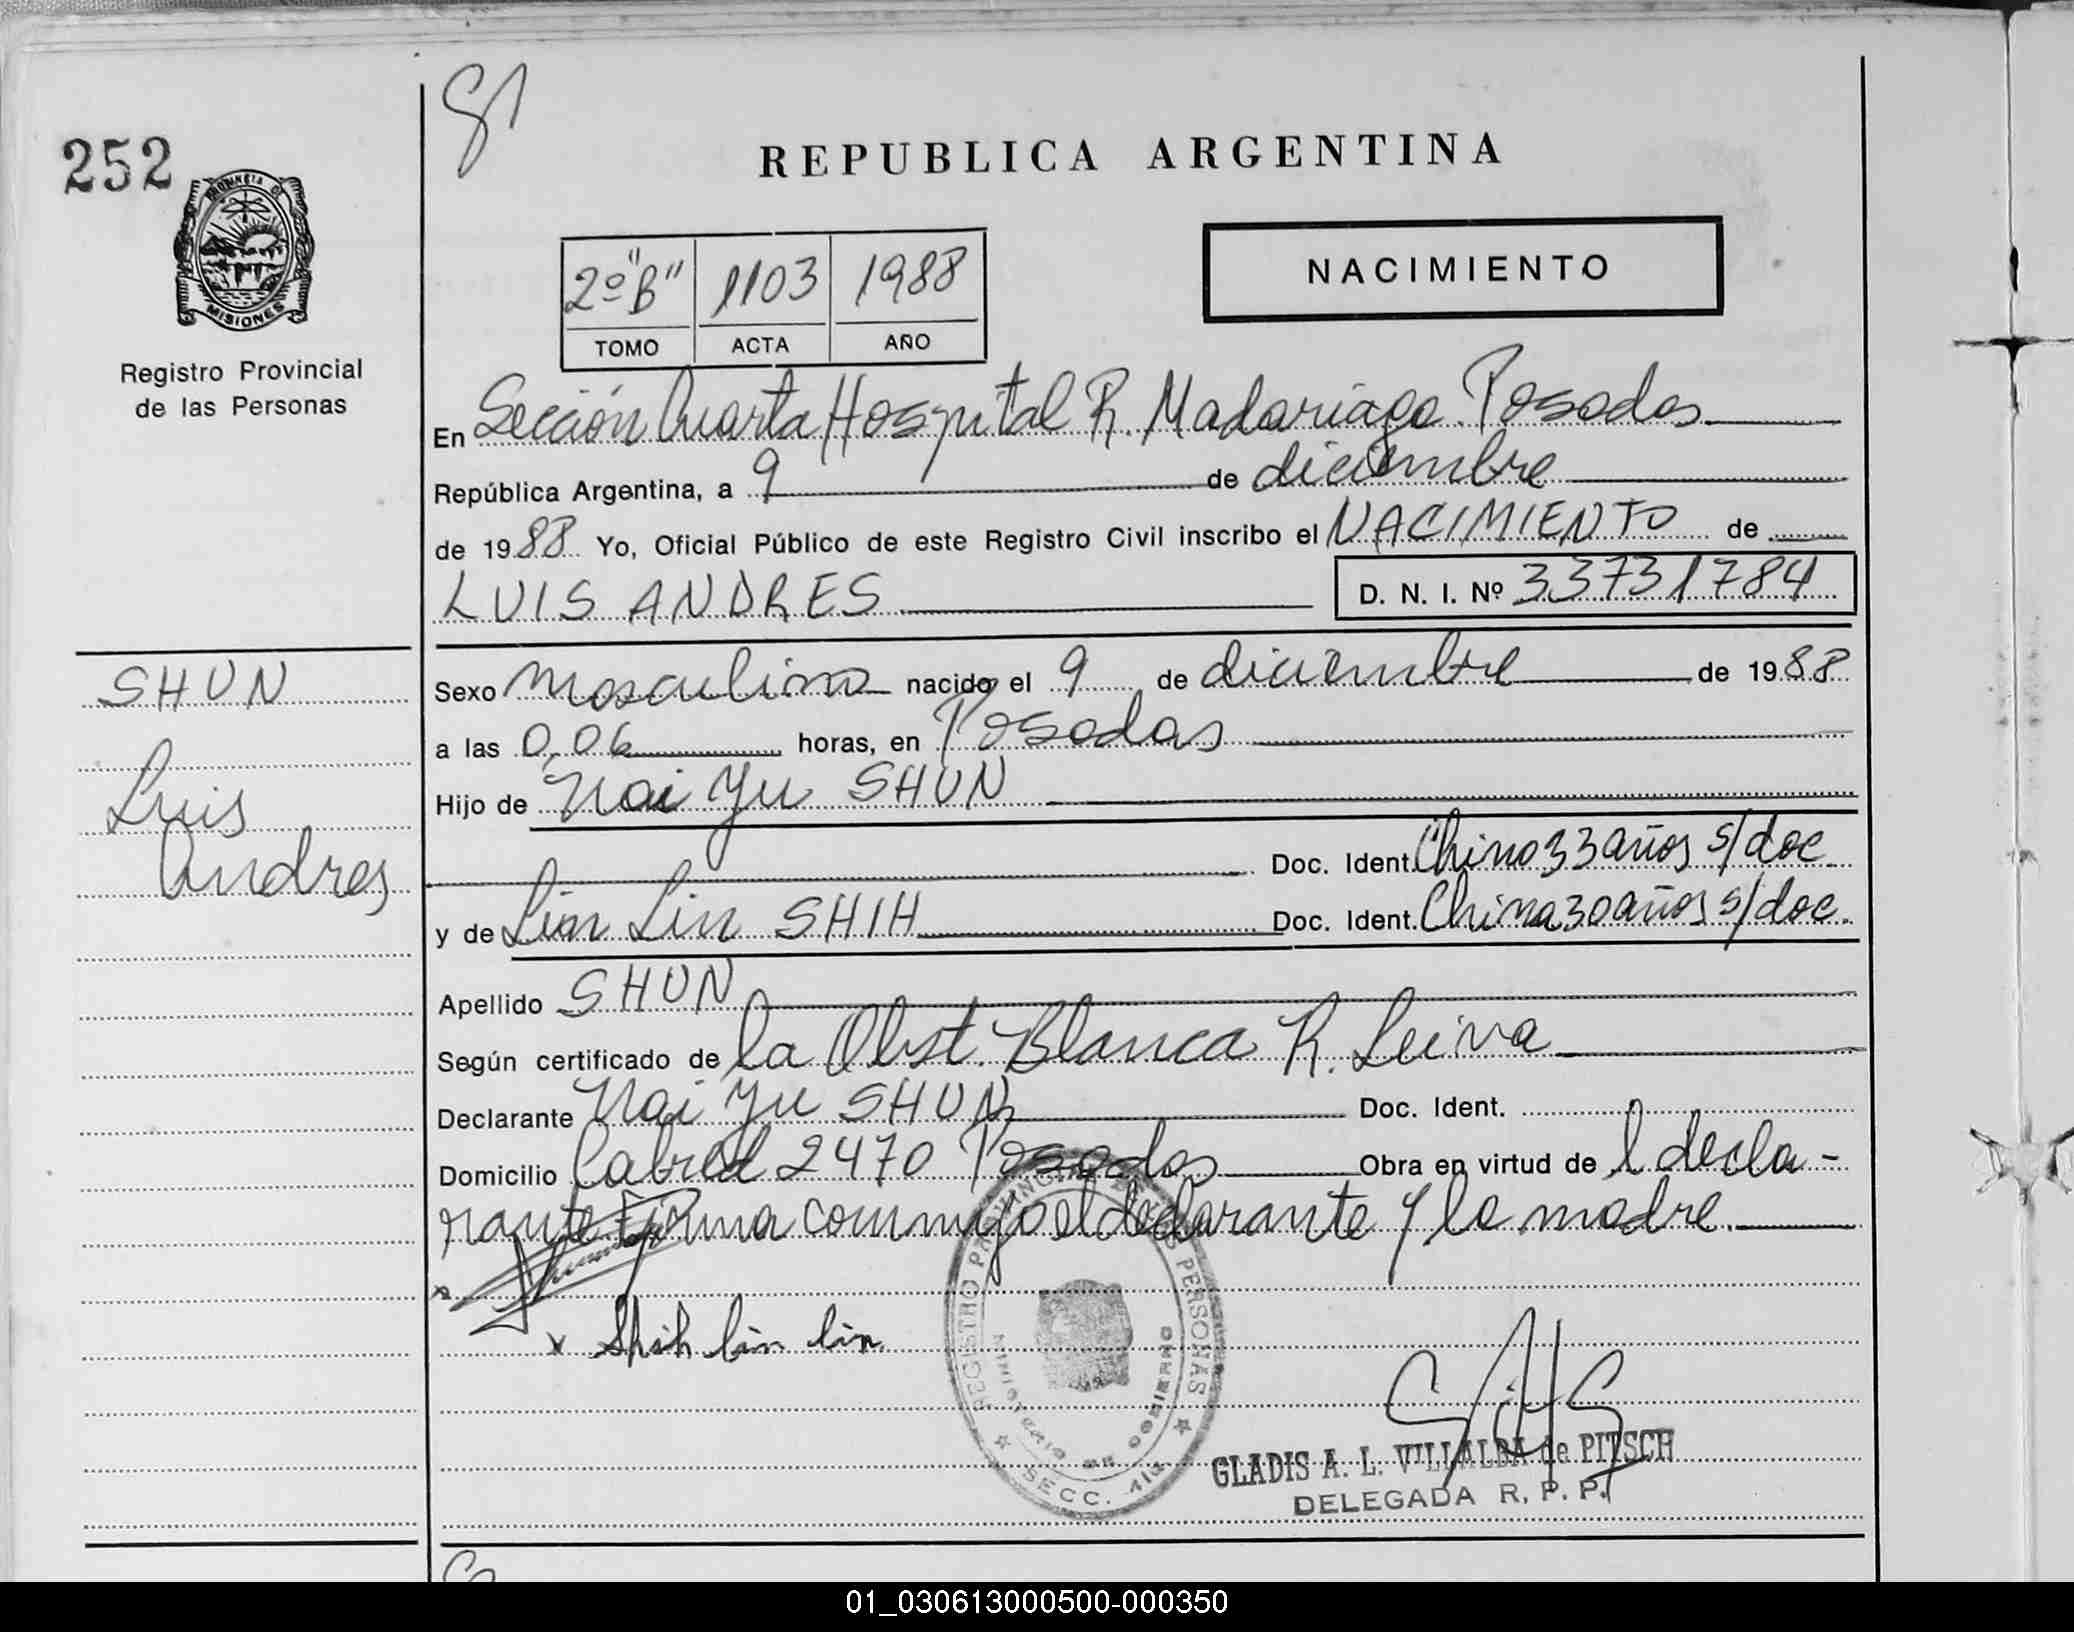 252
PROVINCIA DE
MISIONES
Registro Provincial
de las Personas
SHUN
Luis
Andres
REPUBLICA ARGENTINA
2º"B" 1103 1988
TOMO ACTA AÑO
NACIMIENTO
En Sección Cuarta Hospital R. Madariaga. Posadas
República Argentina, a 9 de diciembre
de 1988 Yo, Oficial Público de este Registro Civil inscribo el NACIMIENTO de
LUIS ANDRES D. N. I. Nº 33731784
Sexo masculino nacido el 9 de diciembre de 1988
a las 0,06 horas, en Posadas
Hijo de Nai Yu SHUN
Doc. Ident. Chino 33 años s/doc
y de Lin Lin SHIH Doc. Ident. China 30 años s/doc.
Apellido SHUN
Según certificado de la Obst. Blanca R. Leiva
Declarante Nai Yu SHUN Doc. Ident.
Domicilio Cabred 2470 Posadas Obra en virtud de l decla-
rante Firma conmigo el declarante y la madre.
x
x Shih lin lin
REGISTRO PROVINCIAL DE LAS PERSONAS
MINISTERIO DE GOBIERNO
SECC. 4ta
GLADIS A. L. VILLALBA de PITSCH
DELEGADA R. P. P.
01_030613000500-000350